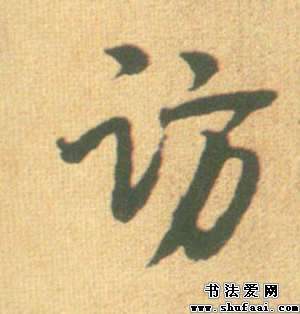 访
书法爱网
www.shufaai.com